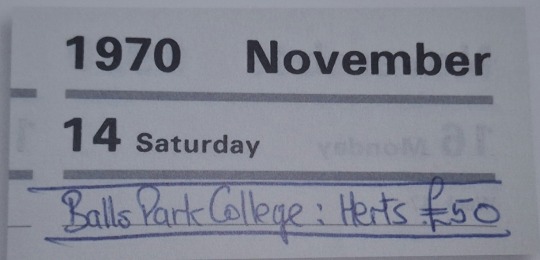 1970 November
14 Saturday
Balls Park College: Herts £50
16 Monday